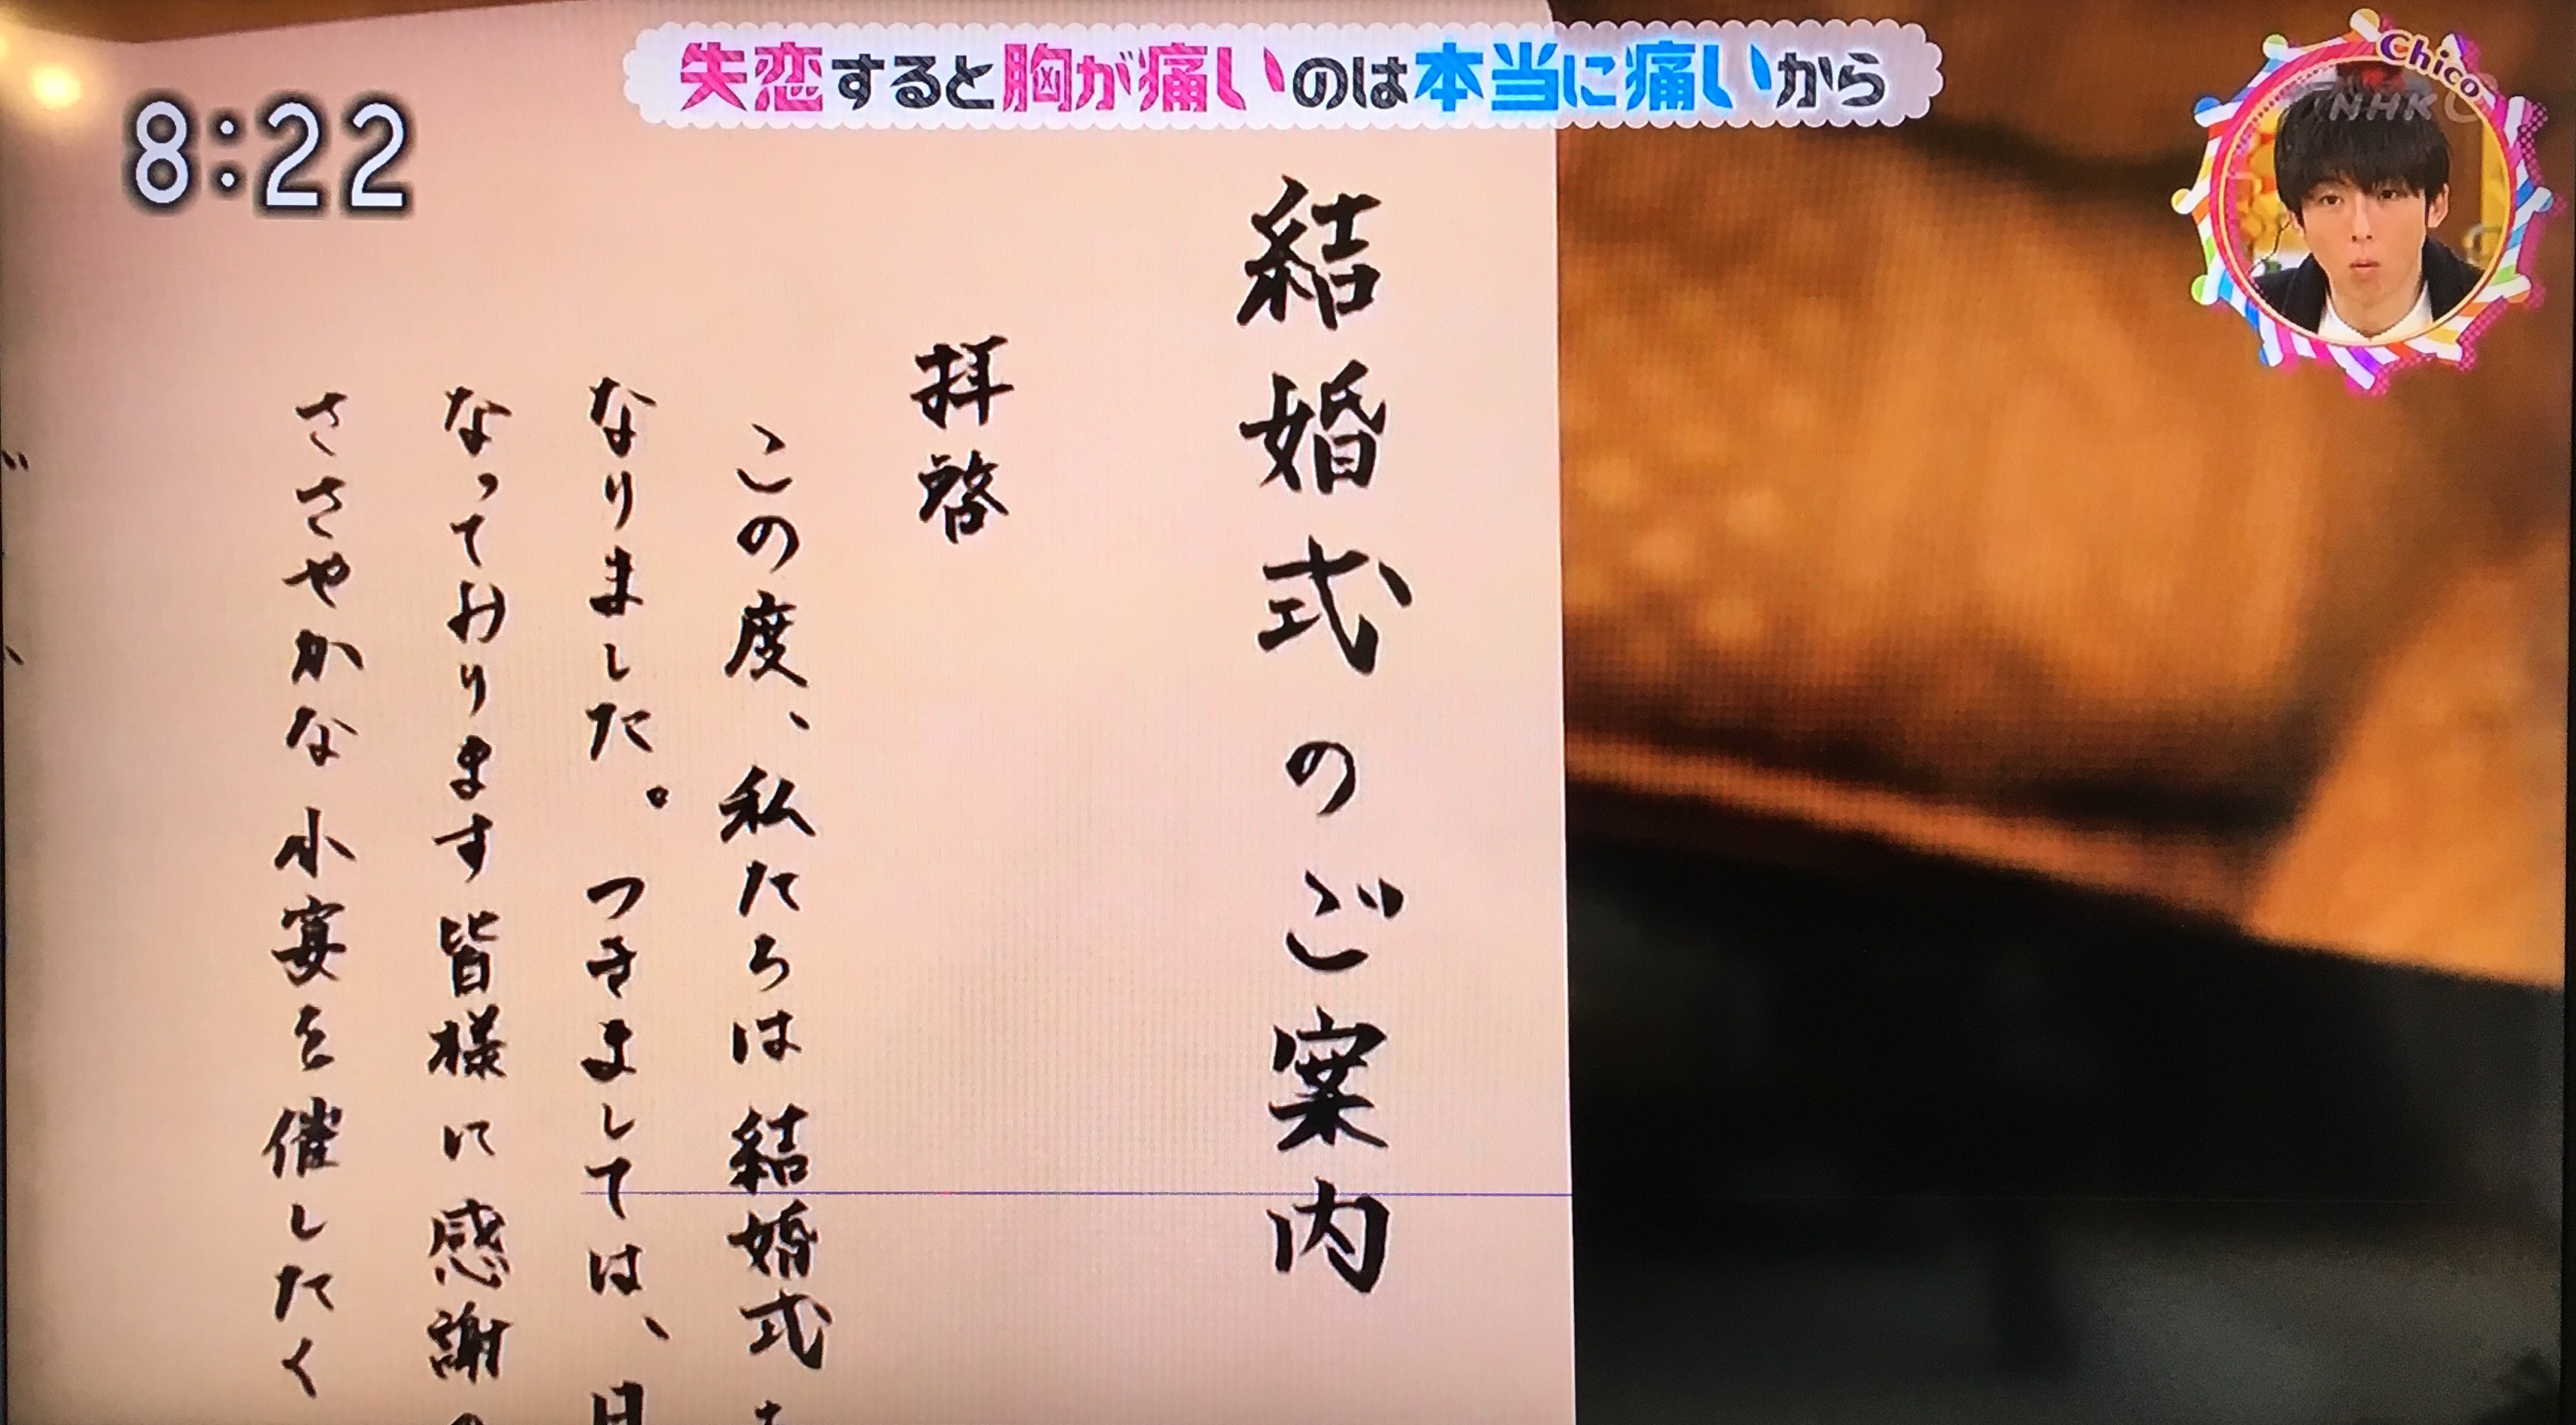 失恋すると胸が痛いのは本当に痛いから
8:22
Chico
NHK
結婚式のご案内
拝啓
この度、私たちは結婚式
なりました。つきましては、
なっております皆様に感謝
ささやかな小宴を催したく